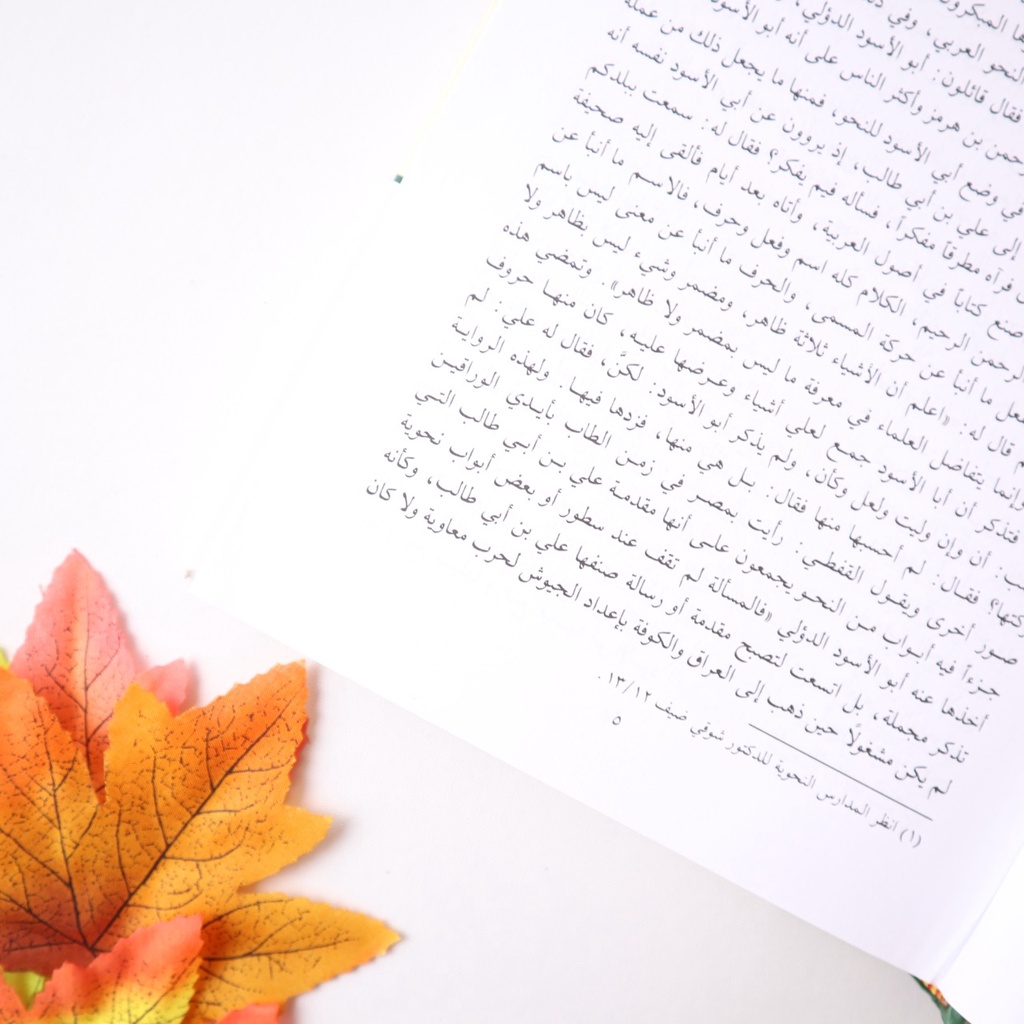 ها المبكرون
النحو العربي، وفي ذلك
فقال قائلون: أبو الأسود الدؤلي،
رحمن بن هرمز وأكثر الناس على أنه أبو الأسود
في وضع أبي الأسود للنحو، فمنها ما يجعل ذلك من عمله
إلى علي بن أبي طالب، إذ يروون عن أبي الأسود نفسه أنه
فرآه مطرقاً مفكراً، فسأله فيم يفكر؟ فقال له: سمعت ببلدكم
صنع كتاباً في أصول العربية، وأتاه بعد أيام فألقى إليه صحيفة
الرحمن الرحيم، الكلام كله اسم وفعل وحرف، فالاسم ما أنبأ عن
فعل ما أنبأ عن حركة المسمى، والحرف ما أنبأ عن معنى ليس باسم
قال له: «اعلم أن الأشياء ثلاثة ظاهر، ومضمر وشيء ليس بظاهر ولا
وإنما يتفاضل العلماء في معرفة ما ليس بمضمر ولا ظاهر»، وتمضي هذه
فتذكر أن أبا الأسود جمع لعلي أشياء وعرضها عليه، كان منها حروف
: أن وإن وليت ولعل وكأن، ولم يذكر أبو الأسود: لكنَّ، فقال له علي: لم
تركتها؟ فقال: لم أحسبها منها فقال: بل هي منها، فزدها فيها. ولهذه الرواية
صور أخرى ويقول القفطي: رأيت بمصر في زمن الطلب بأيدي الوراقين
جزءاً فيه أبواب من النحو يجمعون على أنها مقدمة علي بن أبي طالب التي
أخذها عنه أبو الأسود الدؤلي «فالمسألة لم تقف عند سطور أو بعض أبواب نحوية
تذكر مجملة، بل اتسعت لتصبح مقدمة أو رسالة صنفها علي بن أبي طالب، وكأنه
لم يكن مشغولاً حين ذهب إلى العراق والكوفة بإعداد الجيوش لحرب معاوية ولا كان
(١) انظر المدارس النحوية للدكتور شوقي ضيف ١٣/١٢.
٥